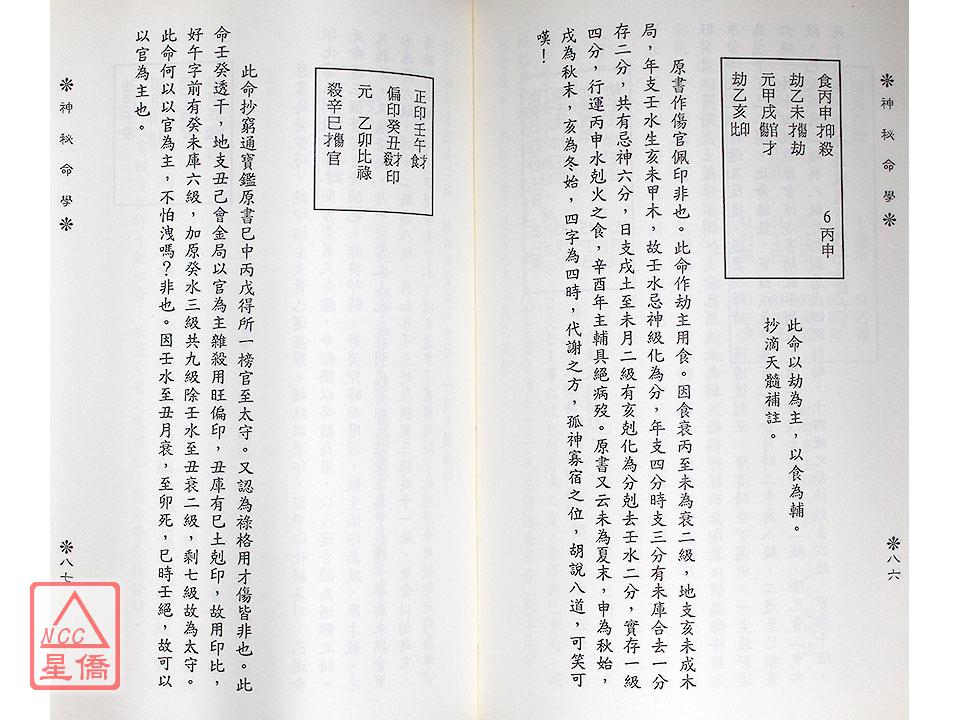 ＊神秘命學＊
＊八六
食丙申才卬殺
劫乙未才傷劫
元甲戌傷官才
劫乙亥比卬
6丙申
此命以劫為主，以食為輔。
抄滴天髓補註。
原書作傷官佩印非也。此命作劫主用食。因食衰丙至未為衰二級，地支亥未成木
局，年支壬水生亥未甲木，故壬水忌神級化為分，年支四分時支三分有未庫合去一分
存二分，共有忌神六分，日支戌土至未月二級有亥剋化為分剋去壬水二分，實存一級
四分，行運丙申水剋火之食，辛酉年主輔具絕病歿。原書又云未為夏末，申為秋始，
戌為秋末，亥為冬始，四字為四時，代謝之方，孤神寡宿之位，胡說八道，可笑可
嘆！
正印壬午食才
偏印癸丑殺才印
元　乙卯比祿
殺辛巳才傷官
此命抄窮通寶鑑原書巳中丙戊得所一榜官至太守。又認為祿格用才傷皆非也。此
命壬癸透干，地支丑己會金局以官為主雜殺用旺偏印，丑庫有巳土剋印，故用印比，
好午字前有癸未庫六級，加原癸水三級共九級除壬水至丑衰二級，剩七級故為太守。
此命何以以官為主，不怕洩嗎？非也。因壬水至丑月衰，至卯死，巳時壬絕，故可以
以官為主也。
＊神秘命學＊
＊八七
NCC
星僑